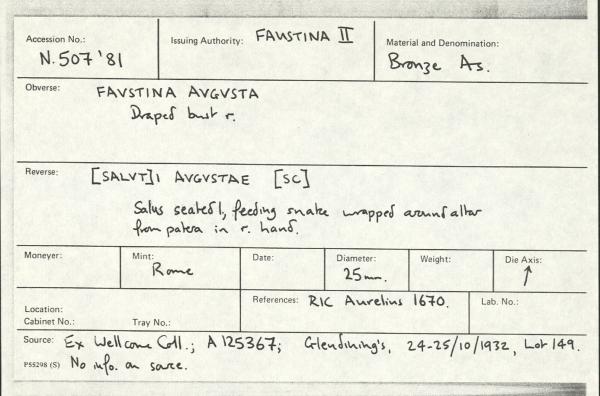 Accession No.: N.507 '81
Issuing Authority: FAUSTINA II
Material and Denomination: Bronze As.
Obverse: FAVSTINA AVGVSTA
Draped bust r.
Reverse: [SALVT]I AVGVSTAE [SC]
Salus seated l, feeding snake wrapped around altar
from patera in r. hand.
Moneyer:
Mint: Rome
Date:
Diameter: 25mm.
Weight:
Die Axis: ↑
Location:
Cabinet No.: Tray No.:
References: RIC Aurelius 1670.
Lab. No.:
Source: Ex Wellcome Coll.; A 125367; Glendining's, 24-25/10/1932, Lot 149.
P55298 (S) No info. on source.